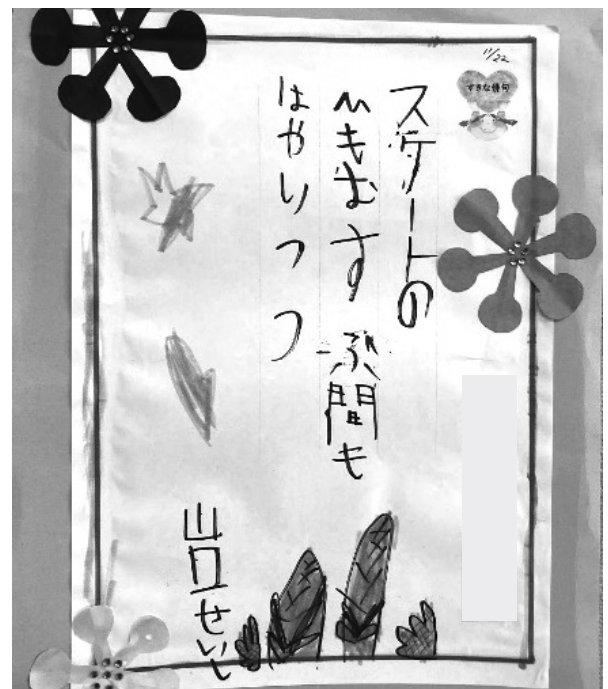 11/22
すきな俳句
スケートの
ひもむすぶ間も
はやりつつ
山口せいし